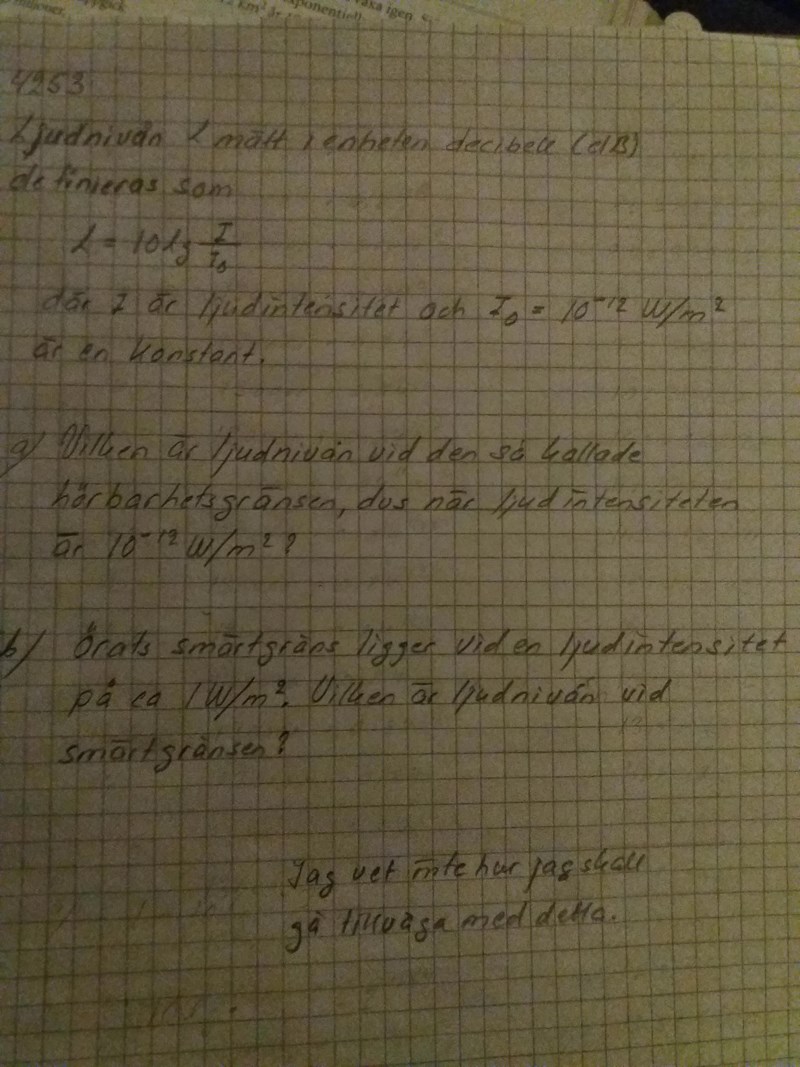 växa igen
miljoner.
km² år
exponentiell
4253
Ljudnivån L mätt i enheten decibell (dB)
definieras som
L = 10 lg I/I₀
där I är ljudintensitet och I₀ = 10⁻¹² W/m²
är en konstant.
a) Vilken är ljudnivån vid den så kallade
hörbarhetsgränsen, dvs när ljudintensiteten
är 10⁻¹² W/m²?
b) Örats smärtgräns ligger vid en ljudintensitet
på ca 1 W/m². Vilken är ljudnivån vid
smärtgränsen?
Jag vet inte hur jag skall
gå tillväga med detta.